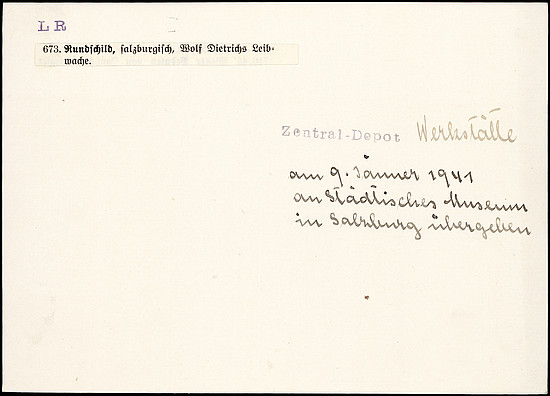 LR
673. Rundschild, salzburgisch, Wolf Dietrichs Leib-
wache.
Zentral-Depot Werkstätte
am 9. Jänner 1941
an Städtisches Museum
in Salzburg übergeben